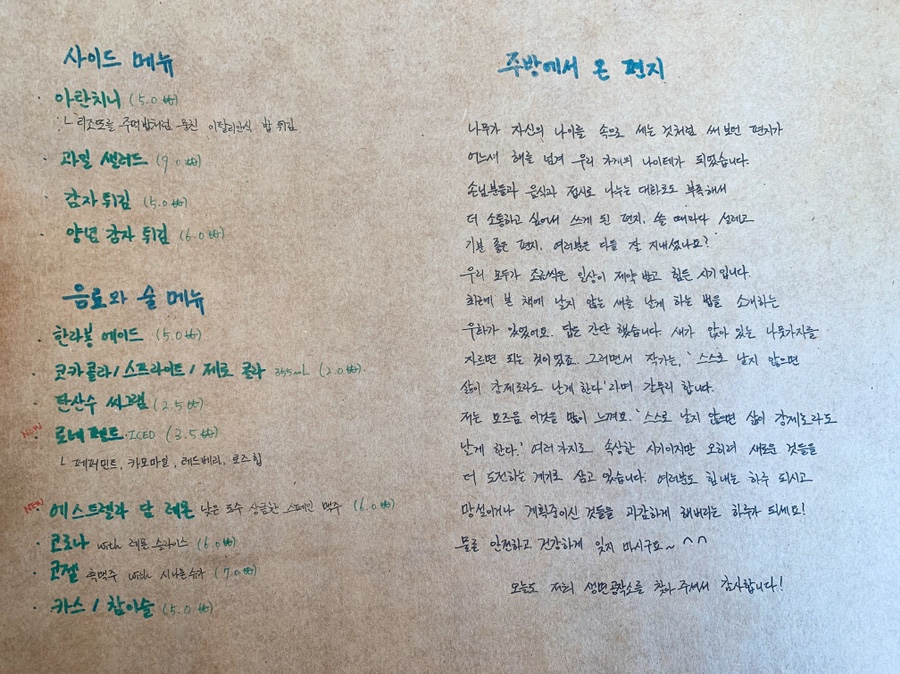 사이드 메뉴
· 아란치니 (5.0₩)
ㄴ 리조또를 주먹밥처럼 뭉친 이탈리안식 밥 튀김
· 과일 샐러드 (9.0₩)
· 감자 튀김 (5.0₩)
· 양념 감자 튀김 (6.0₩)
음료와 술 메뉴
· 한라봉 에이드 (5.0₩)
· 코카콜라 / 스프라이트 / 제로 콜라 355mL (2.0₩)
· 탄산수 씨그램 (2.5₩)
NEW
· 로네펠트 ICED (3.5₩)
ㄴ 페퍼민트, 카모마일, 레드베리, 로즈힙
NEW
· 에스트렐라 담 레몬 낮은 도수 상큼한 스페인 맥주 (6.0₩)
· 코로나 with 레몬 슬라이스 (6.0₩)
· 코젤 흑맥주 with 시나몬슈가 (7.0₩)
· 카스 / 참이슬 (5.0₩)
주방에서 온 편지
나무가 자신의 나이를 속으로 세는 것처럼 써 보던 편지가
어느새 해를 넘겨 우리 가게의 나이테가 되었습니다.
손님분들과 음식과 접시로 나누는 대화로도 부족해서
더 소통하고 싶어서 쓰게 된 편지. 쓸 때마다 설레고
기분 좋은 편지. 여러분은 다들 잘 지내셨나요?
우리 모두가 조금씩은 일상이 제약 받고 힘든 시기입니다.
최근에 본 책에 날지 않는 새를 날게 하는 법을 소개하는
우화가 있었어요. 답은 간단 했습니다. 새가 앉아 있는 나뭇가지를
자르면 되는 것이었죠. 그러면서 작가는, '스스로 날지 않으면
삶이 강제로라도 날게 한다'라며 갈무리 합니다.
저는 요즈음 이것을 많이 느껴요. '스스로 날지 않으면 삶이 강제로라도
날게 한다.' 여러가지로 속상한 시기이지만 오히려 새로운 것들을
더 도전하는 계기로 삼고 있습니다. 여러분도 힘내는 하루 되시고
망설이거나 계획중이신 것들을 과감하게 해버리는 하루가 되세요!
물론 안전하고 건강하게 잊지 마시구요~ ^^
오늘도 저희 생면공작소를 찾아 주셔서 감사합니다!